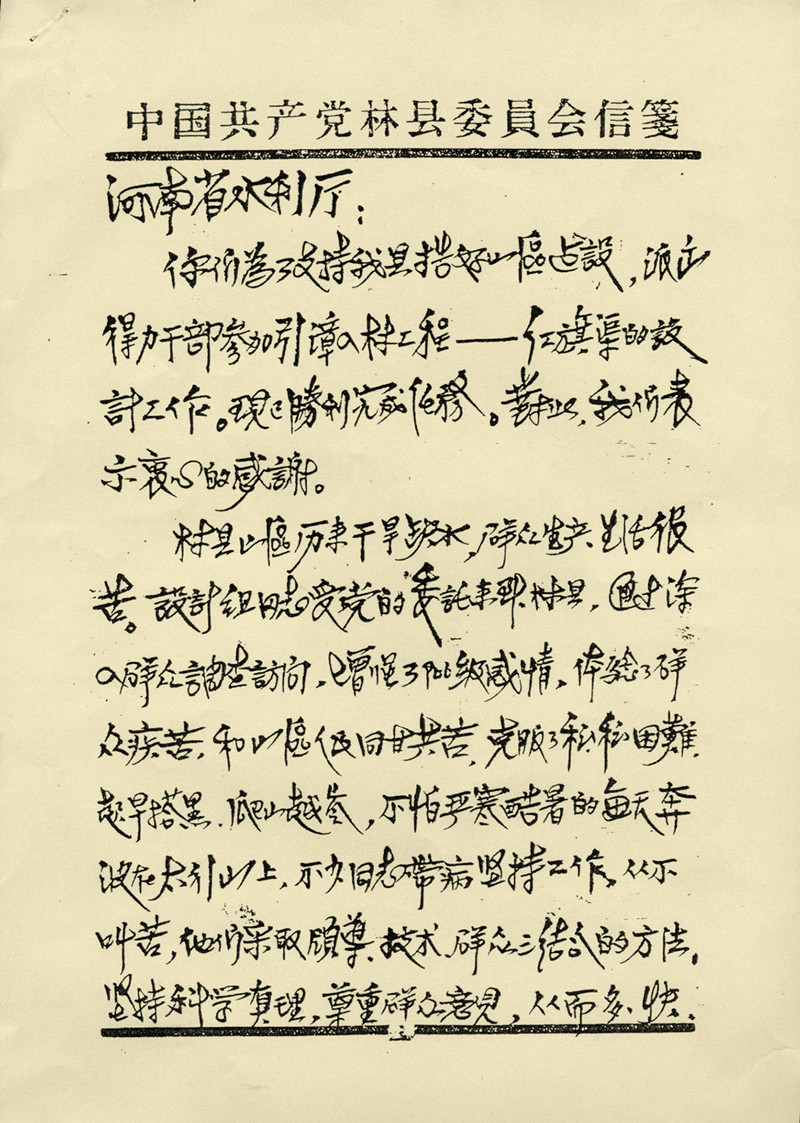 中国共产党林县委員会信箋
河南省水利厅：
你们為了支持我县搭好山區建設，派出
得力干部參加引漳入林工程——红旗渠的設
計工作。現已勝利完成任務。對此，我们表
示衷心的感謝。
林县山區历来干旱缺水，群众生产、生活很
苦。設計组同志受党的委託来到林县，通过深
入群众調查訪问，增强了阶级感情，体验了群
众疾苦，和山區人民同甘共苦，克服了种种困難，
起早搭黑，爬山越岭，不怕严寒酷暑的每天奔
波在太行山上，不少同志带病坚持工作，从不
叫苦，他们采取領導、技术、群众三结合的方法，
坚持科学真理，尊重群众意見，从而多、快、